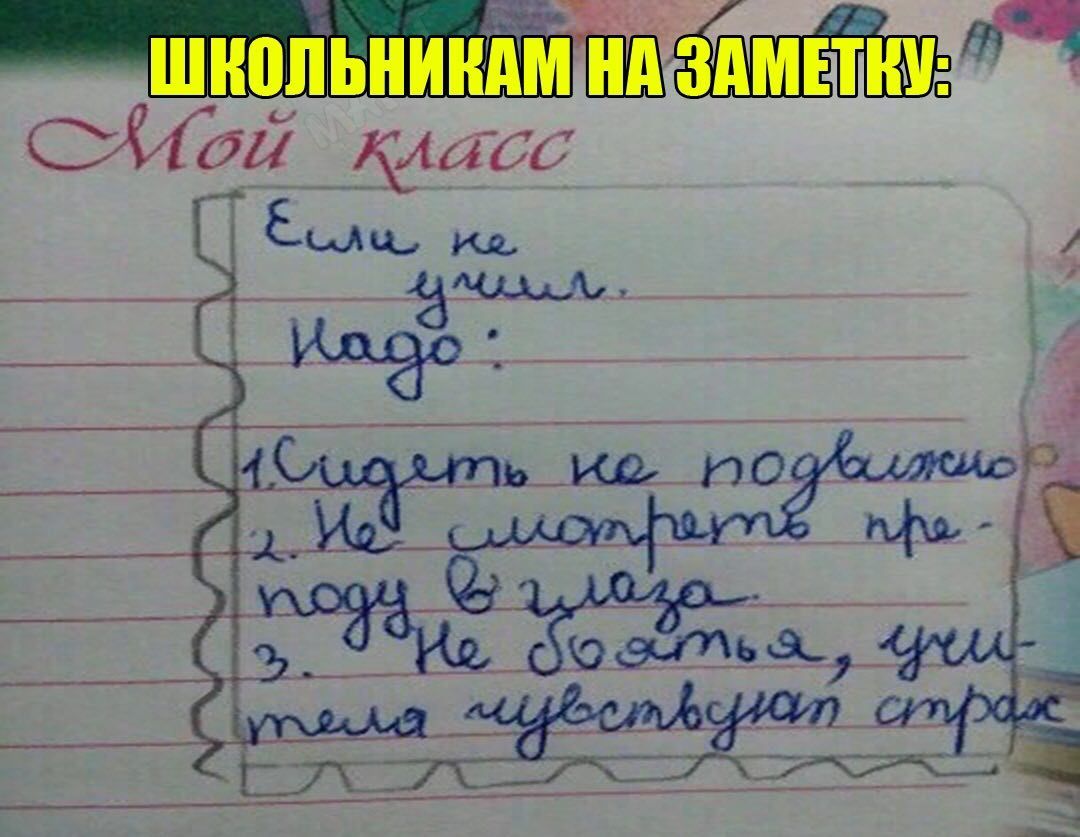 ШКОЛЬНИКАМ НА ЗАМЕТКУ:
Мой класс
Если не
учил.
Надо:
1. Сидеть не подвижно
2. Не смотреть пре-
поду в глаза.
3. Не боятья, учи-
теля чувствуют страх